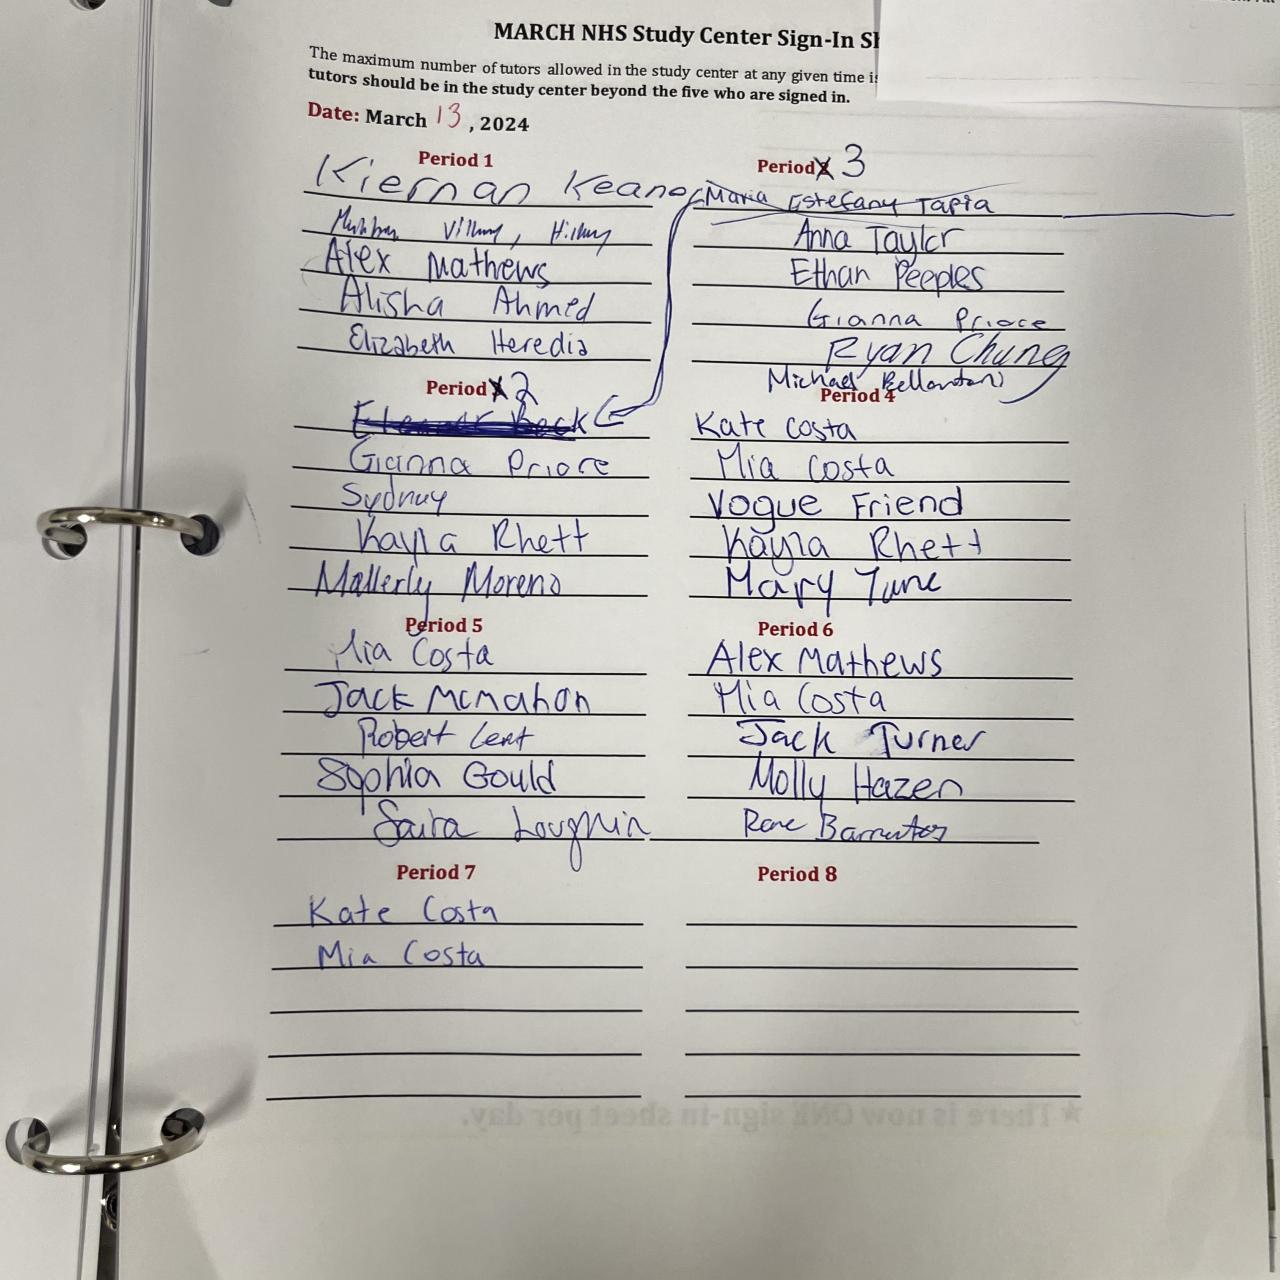 MARCH NHS Study Center Sign-In
The maximum number of tutors allowed in the study center at any given time is
tutors should be in the study center beyond the five who are signed in.
Date: March 13, 2024
Period 1
Kiernan Keane
Alex Mathews
Alisha Ahmed
Elizabeth Heredia
Period 3
Maria Estefany Tapia
Anna Taylor
Ethan Peeples
Gianna Priore
Ryan Chung
Michael Bellantoni
Period 2
Gianna Priore
Sydney
Kayla Rhett
Mallerly Moreno
Period 4
Kate Costa
Mia Costa
Vogue Friend
Kayla Rhett
Mary Tune
Period 5
Mia Costa
Jack McMahon
Robert Lent
Sophia Gould
Saira Loughlin
Period 6
Alex Mathews
Mia Costa
Jack Turner
Molly Hazen
Rene Barrientos
Period 7
Kate Costa
Mia Costa
Period 8
★ There is now ONE sign-in sheet per day.